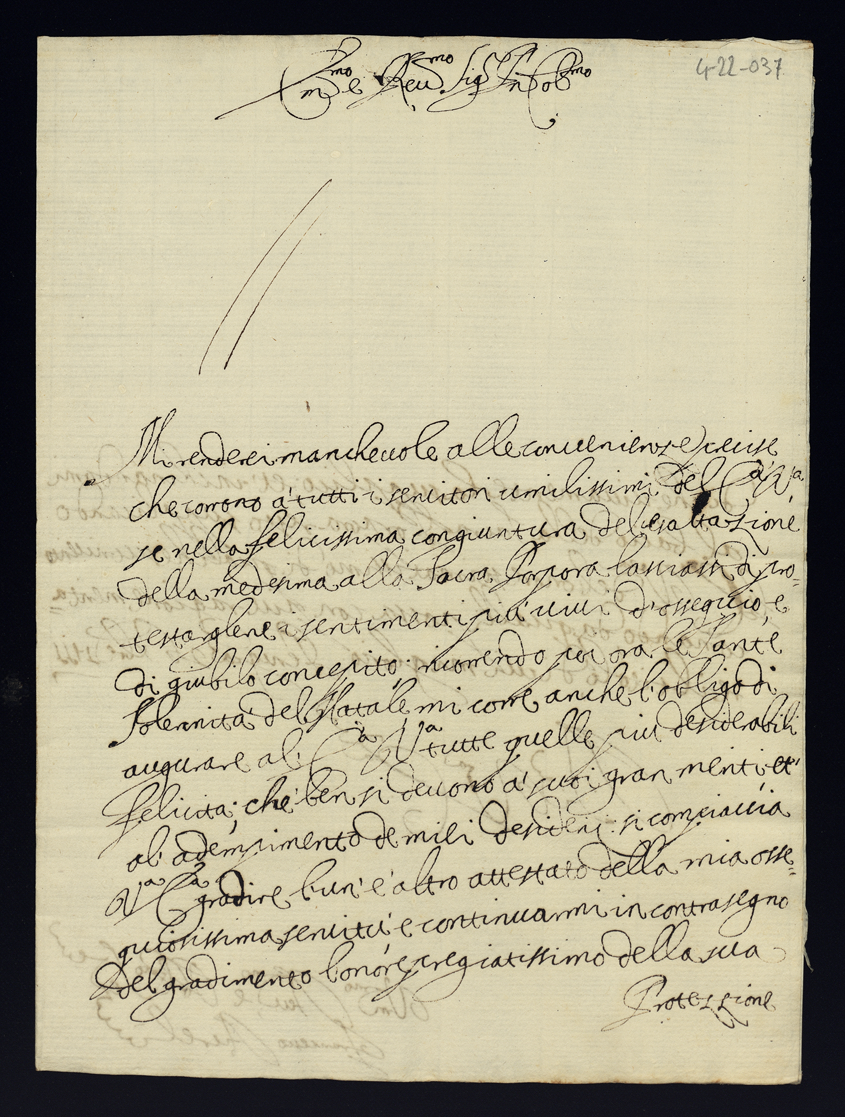 4-22-037
Em.mo e Reu.mo Sig.r Pn Col.mo
Mi renderei mancheuole alle conuenienze precise
che corrono à tutti i seruitori umilissimi del E.a V.a
se nella felicissima congiuntura del esaltazione
della medesima alla Sacra Porpora lasciassi di pro=
testarglene i sentimenti più uiui d'ossequio, e
di giubilo concepito; ricorrendo poi ora le Sante
Solennità del Natale mi corre anche l'obligo di
augurare al' E.a V.a tutte quelle più desiderabili
felicità, che ben si deuono à suoi gran meriti, et
al' adempimento de miei desideri: si compiaccia
V.a E.a gradire l'un' e altro attestato della mia osse=
quiosissima seruitù e continuarmi in contrasegno
del gradimento l'onore pregiatissimo della sua
Protezzione